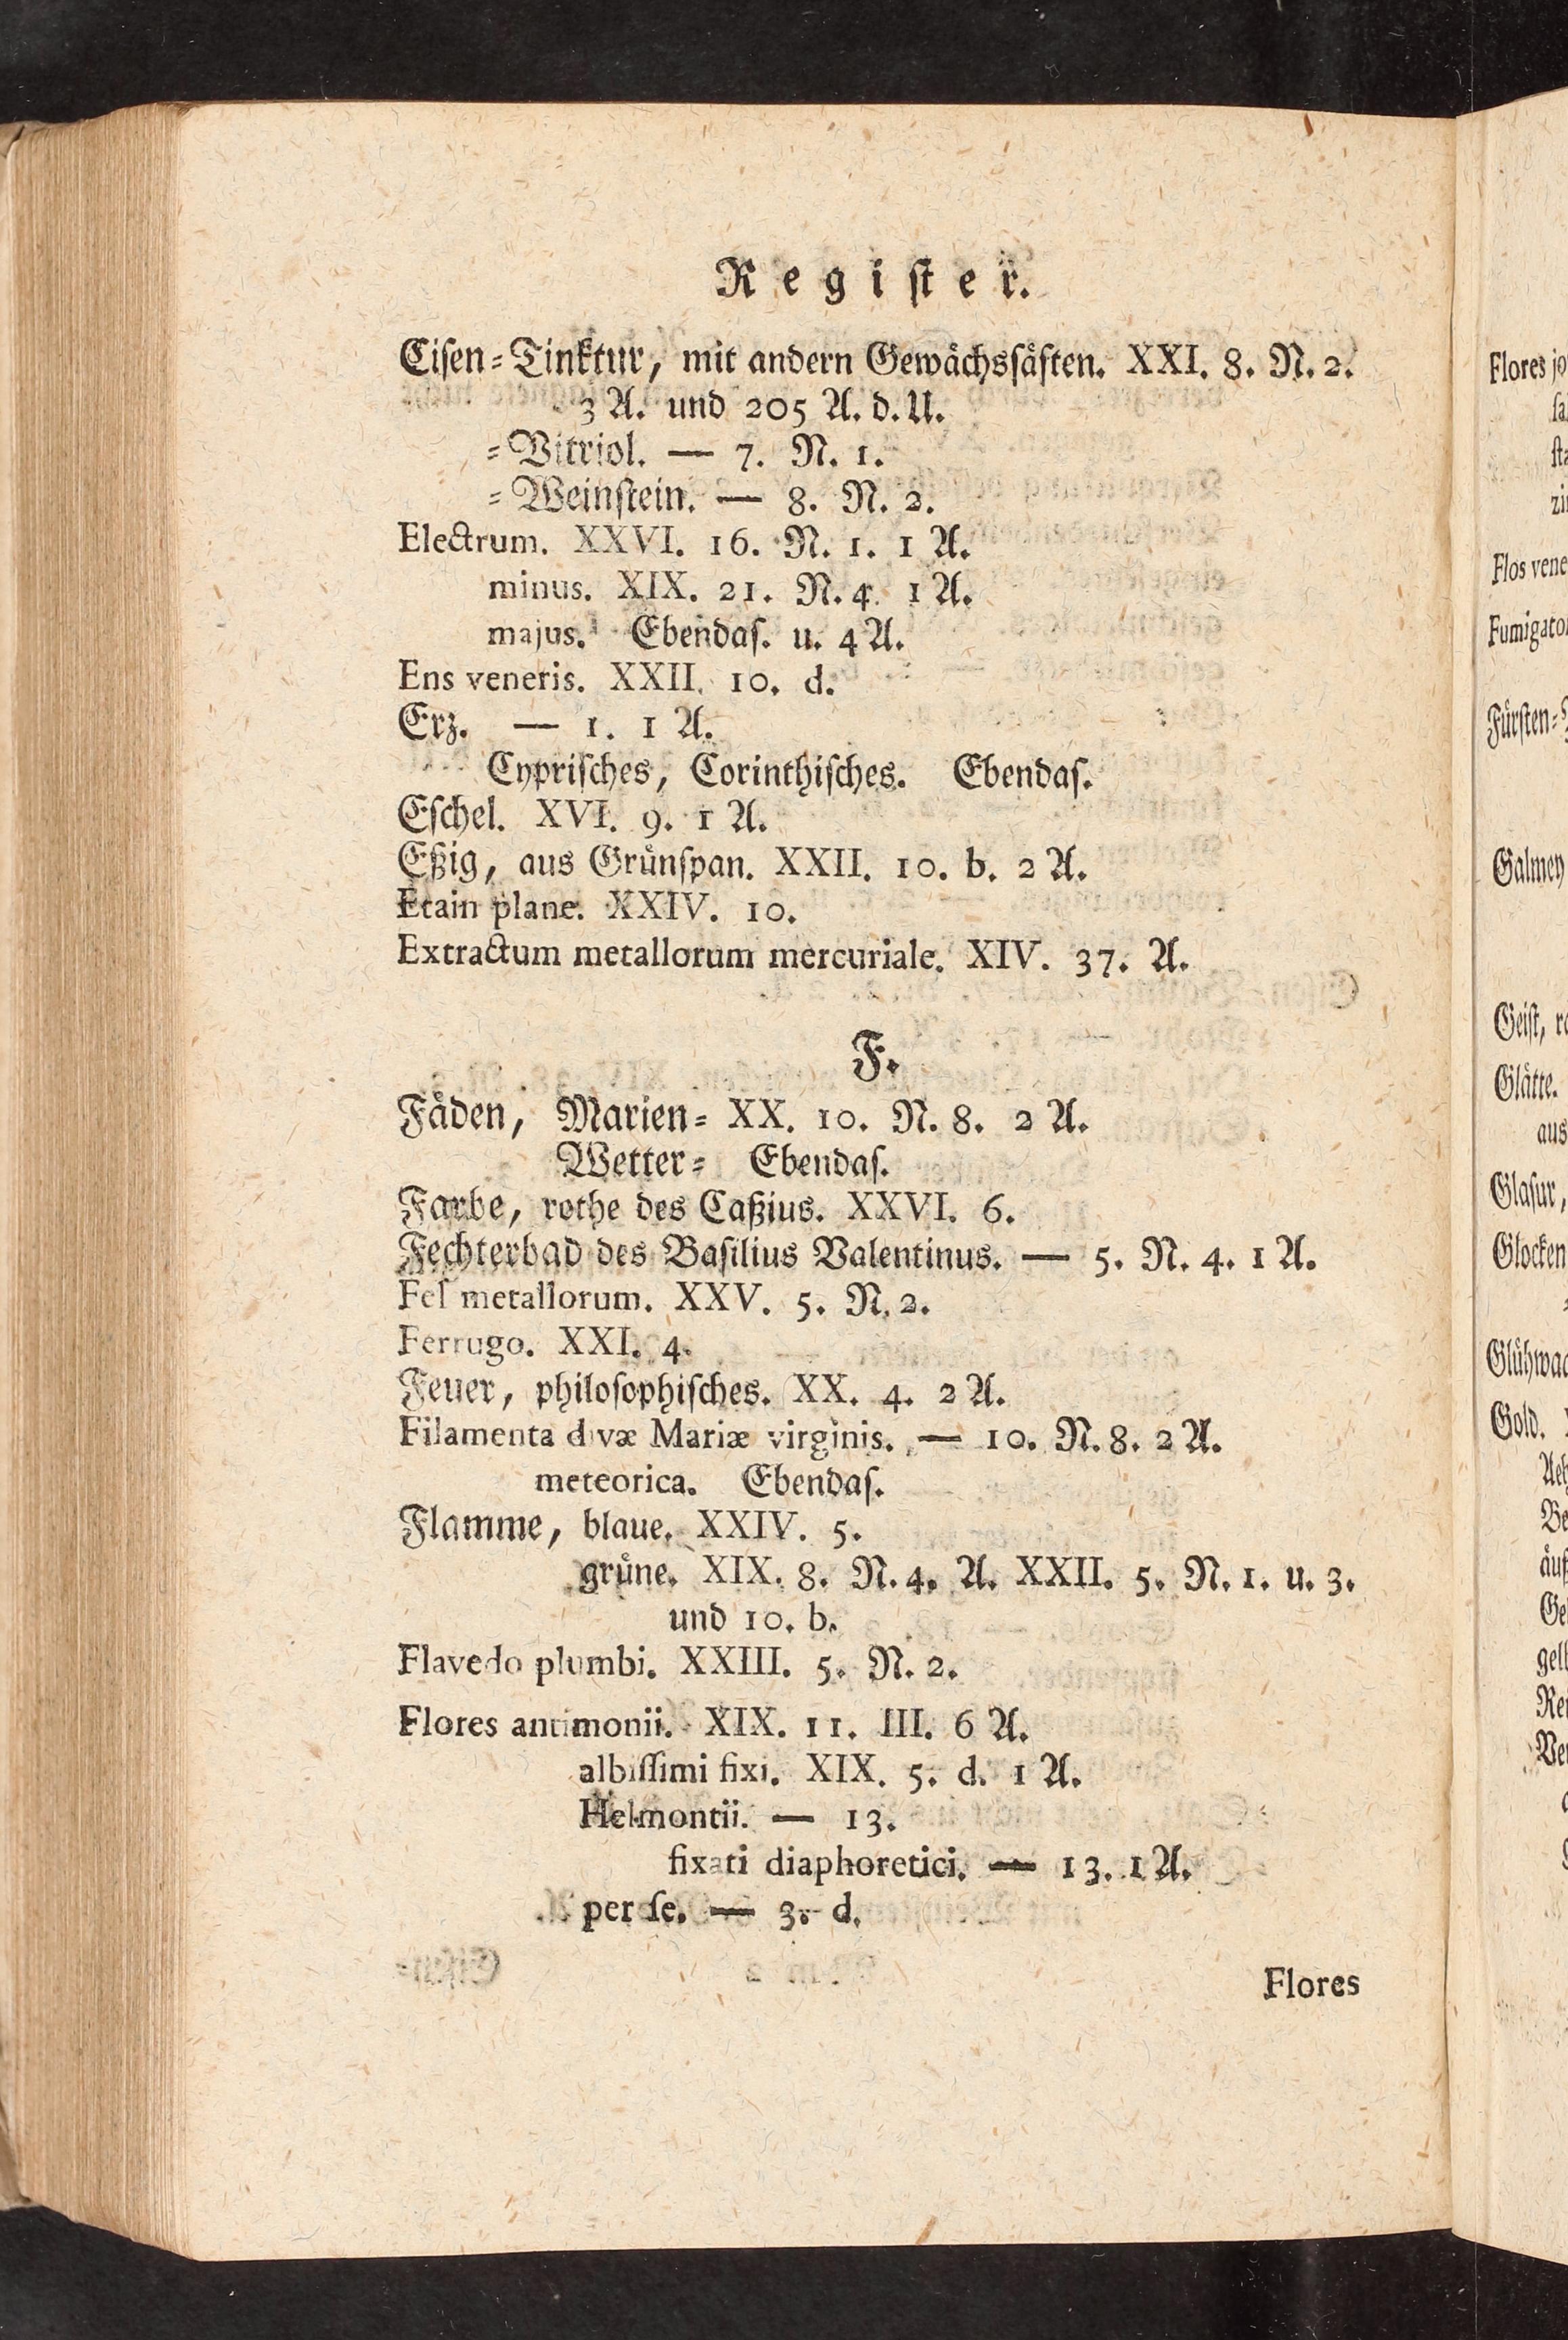 Regiſter.
Eiſen-Tinktur, mit andern Gewächsſäften. XXI. 8. N. 2.
3 A. und 205 A. d. U.
-Vitriol. — 7. N. 1.
-Weinſtein. — 8. N. 2.
Electrum. XXVI. 16. N. 1. 1 A.
minus. XIX. 21. N. 4. 1 A.
majus. Ebendaſ. u. 4 A.
Ens veneris. XXII. 10. d.
Erz. — 1. 1 A.
Cypriſches, Corinthiſches. Ebendaſ.
Eſchel. XVI. 9. 1 A.
Eßig, aus Grünſpan. XXII. 10. b. 2 A.
Etain plane. XXIV. 10.
Extractum metallorum mercuriale. XIV. 37. A.
F.
Fäden, Marien- XX. 10. N. 8. 2 A.
Wetter- Ebendaſ.
Farbe, rothe des Caßius. XXVI. 6.
Fechterbad des Baſilius Valentinus. — 5. N. 4. 1 A.
Fel metallorum. XXV. 5. N. 2.
Ferrugo. XXI. 4.
Feuer, philoſophiſches. XX. 4. 2 A.
Filamenta divæ Mariæ virginis. — 10. N. 8. 2 A.
meteorica. Ebendaſ.
Flamme, blaue. XXIV. 5.
grüne. XIX. 8. N. 4. A. XXII. 5. N. 1. u. 3.
und 10. b.
Flavedo plumbi. XXIII. 5. N. 2.
Flores antimonii. XIX. 11. III. 6 A.
albiſſimi fixi. XIX. 5. d. 1 A.
Helmontii. — 13.
fixati diaphoretici. — 13. 1 A.
per ſe. — 3. d.
Flores
Flores
Flos
Fumigato
Fürſten-
Galmey
Geiſt,
Glätte.
aus
Glaſur,
Glocken
Gold.